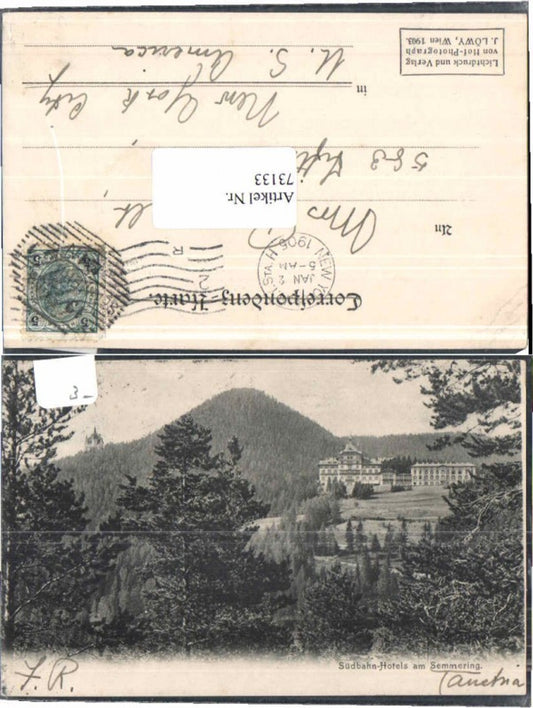 Correspondenz-Karte.
NEW YO
JAN 2
5-AM
1906
STA. H
2
R
5
5
An
Mrs
583
New York City
in
U. S. America
Lichtdruck und Verlag
von Hof-Photograph
J. LÖWY, Wien 1903.
Artikel Nr.
73133
3-
Südbahn-Hotels am Semmering.
F. R.